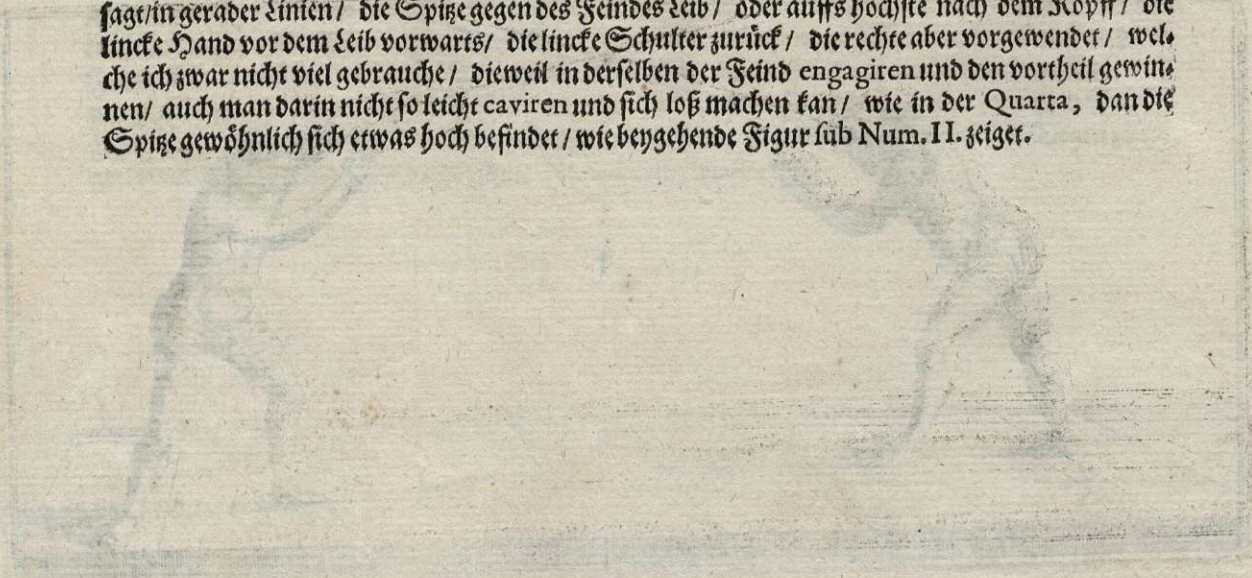 sagt/in gerader Linien/ die Spitze gegen des Feindes Leib/ oder auffs höchste nach dem Kopff/ die
lincke Hand vor dem Leib vorwarts/ die lincke Schulter zurück/ die rechte aber vorgewendet/ wel-
che ich zwar nicht viel gebrauche/ dieweil in derselben der Feind engagiren und den vortheil gewin-
nen/ auch man darin nicht so leicht caviren und sich loß machen kan/ wie in der Quarta, dan die
Spitze gewöhnlich sich etwas hoch befindet/ wie beygehende Figur sub Num. II. zeiget.